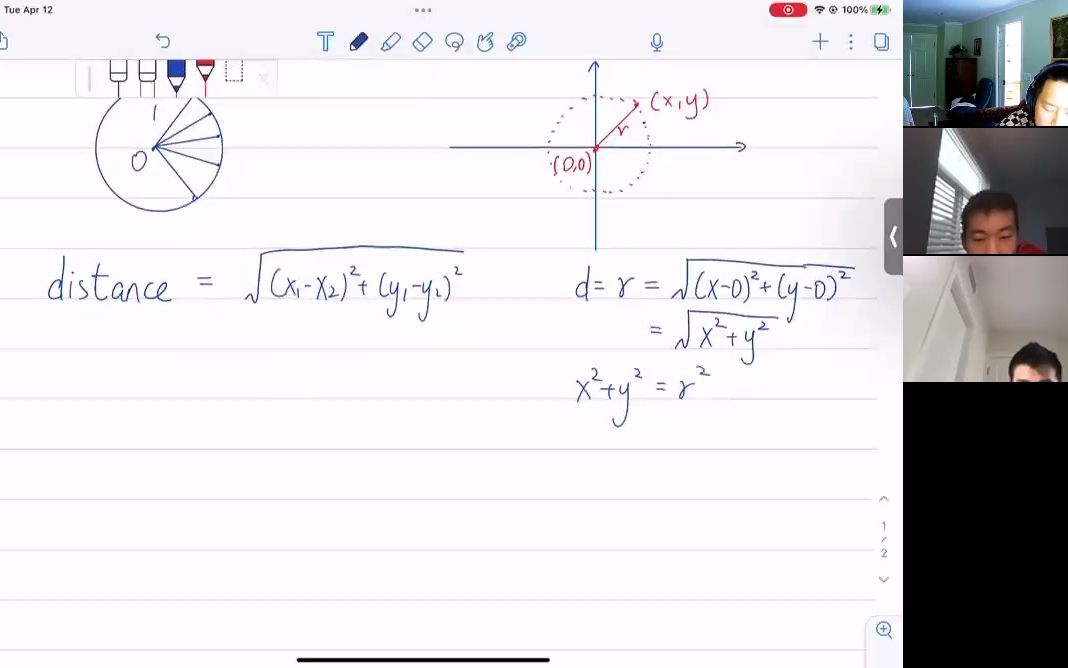 Tue Apr 12
100%
T
(x,y)
r
O
(0,0)
distance = √(x₁-x₂)²+(y₁-y₂)²
d = r = √(x-0)²+(y-0)²
= √x²+y²
x²+y² = r²
1
/
2